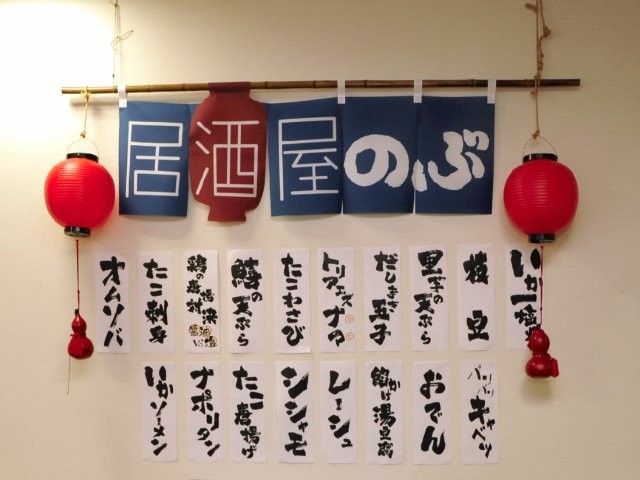 居酒屋のぶ
いか
枝豆
里芋の天ぷら
だしまき玉子
トリアエズナマ
たこわさび
の天ぷら
鶏の唐揚対決
醤油VS塩
たこ刺身
オムソバ
パリパリキャベツ
おでん
餡かけ湯豆腐
レーシュ
シシャモ
たこ唐揚げ
ナポリタン
いかソーメン